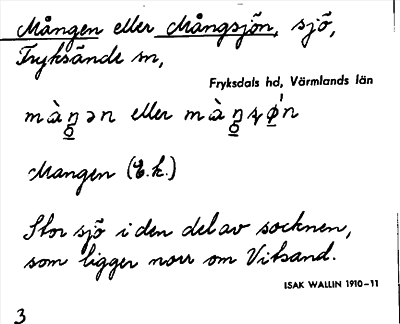 Mången eller Mångsjön, sjö,
Fryksände sn,
Fryksdals hd, Värmlands län
màŋən eller màŋ
Mangen (E.k.)
Stor sjö i den del av socknen,
som ligger norr om Vitsand.
ISAK WALLIN 1910-11
3